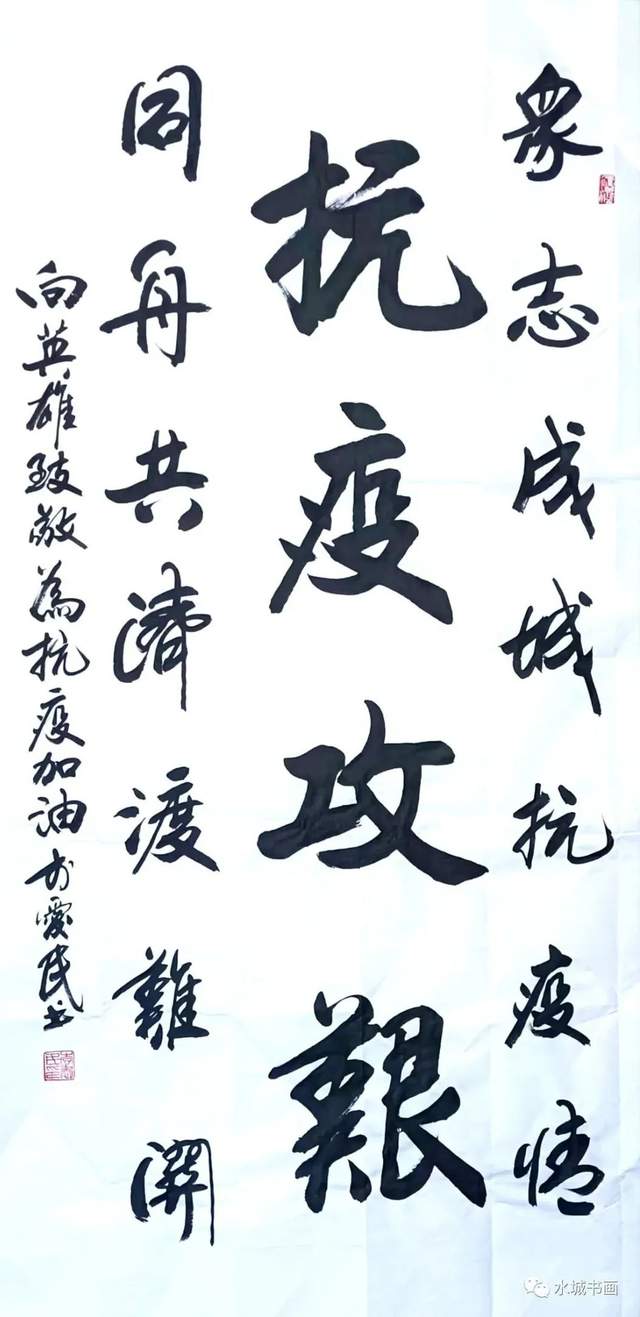 衆志成城抗疫情
抗疫攻艱
同舟共濟渡難關
向英雄致敬為抗疫加油 愛民书
水城书画